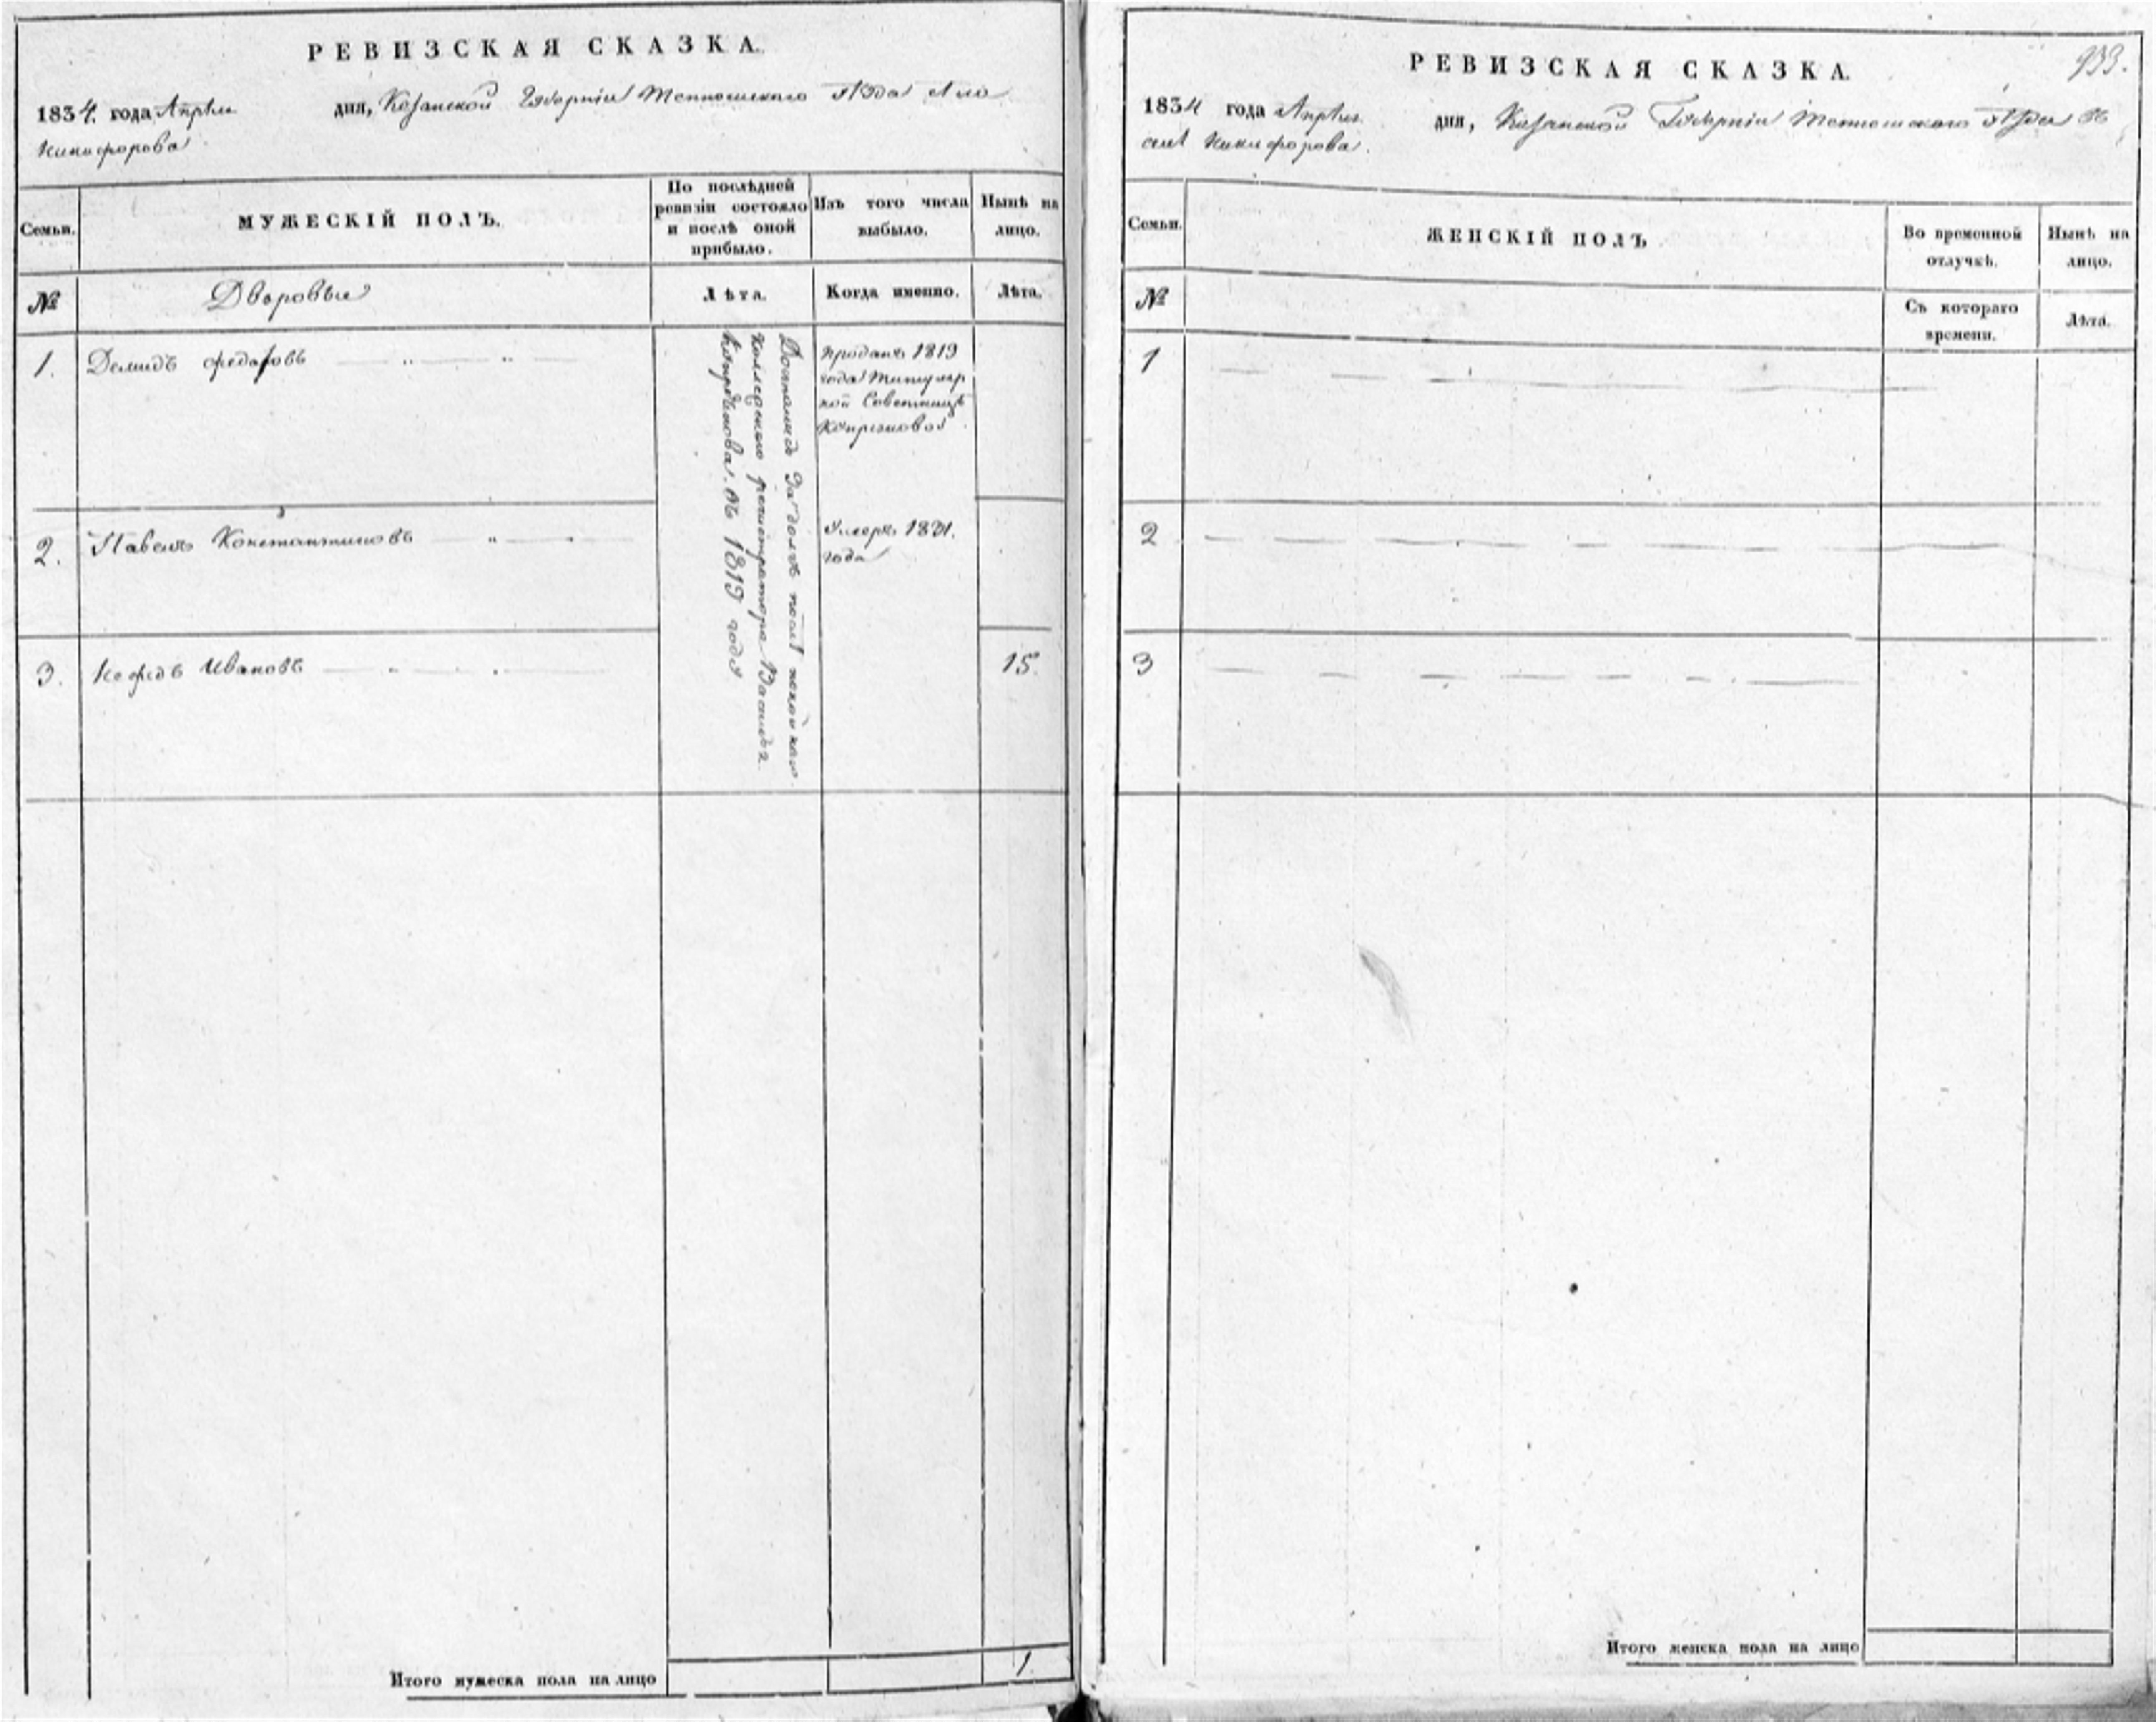 РЕВИЗСКАЯ СКАЗКА.
1834. года Апреля дня, Казанской Губерніи Тетюшскаго Уѣзда села
Никифорова
Семьи.
МУЖЕСКІЙ ПОЛЪ.
По послѣдней ревизіи состояло и послѣ оной прибыло.
Изъ того числа выбыло.
Нынѣ на лицо.
№
Дворовые
Лѣта.
Когда именно.
Лѣта.
1. Демидъ Федоровъ
проданъ 1819
года Титуляр
ной Советницѣ
2. Павелъ Константиновъ
Умеръ 1831.
года
3. Нефидъ Ивановъ
15.
Достались за долгъ после покойнаго
Коллежскаго регистратора Василья
въ 1819 года
Итого мужеска пола на лицо
1.
РЕВИЗСКАЯ СКАЗКА.
933.
1834 года Апреля дня, Казанской Губерніи Тетюшскаго Уѣзда въ
селе Никифорова.
Семьи.
ЖЕНСКІЙ ПОЛЪ.
Во временной отлучкѣ.
Нынѣ на лицо.
№
Съ котораго времени.
Лѣта.
1
2
3
Итого женска пола на лицо